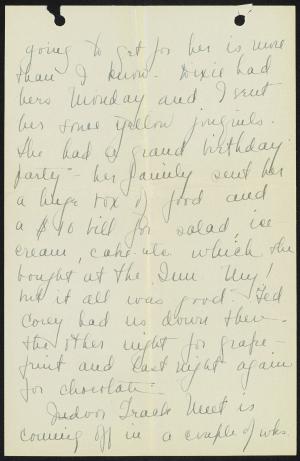 going to get for her is more
than I know. Dixie had
hers Monday and I sent
her some yellow jonquils.
She had a grand birthday
party - her family sent her
a huge box of food and
a $10 bill for salad, ice
cream, cake etc which she
bought at the Inn. My!
but it all was good. Ted
Corey had us down there
the other night for grape-
fruit and last night again
for chocolate.
Indoor Track Meet is
coming off in a couple of wks.